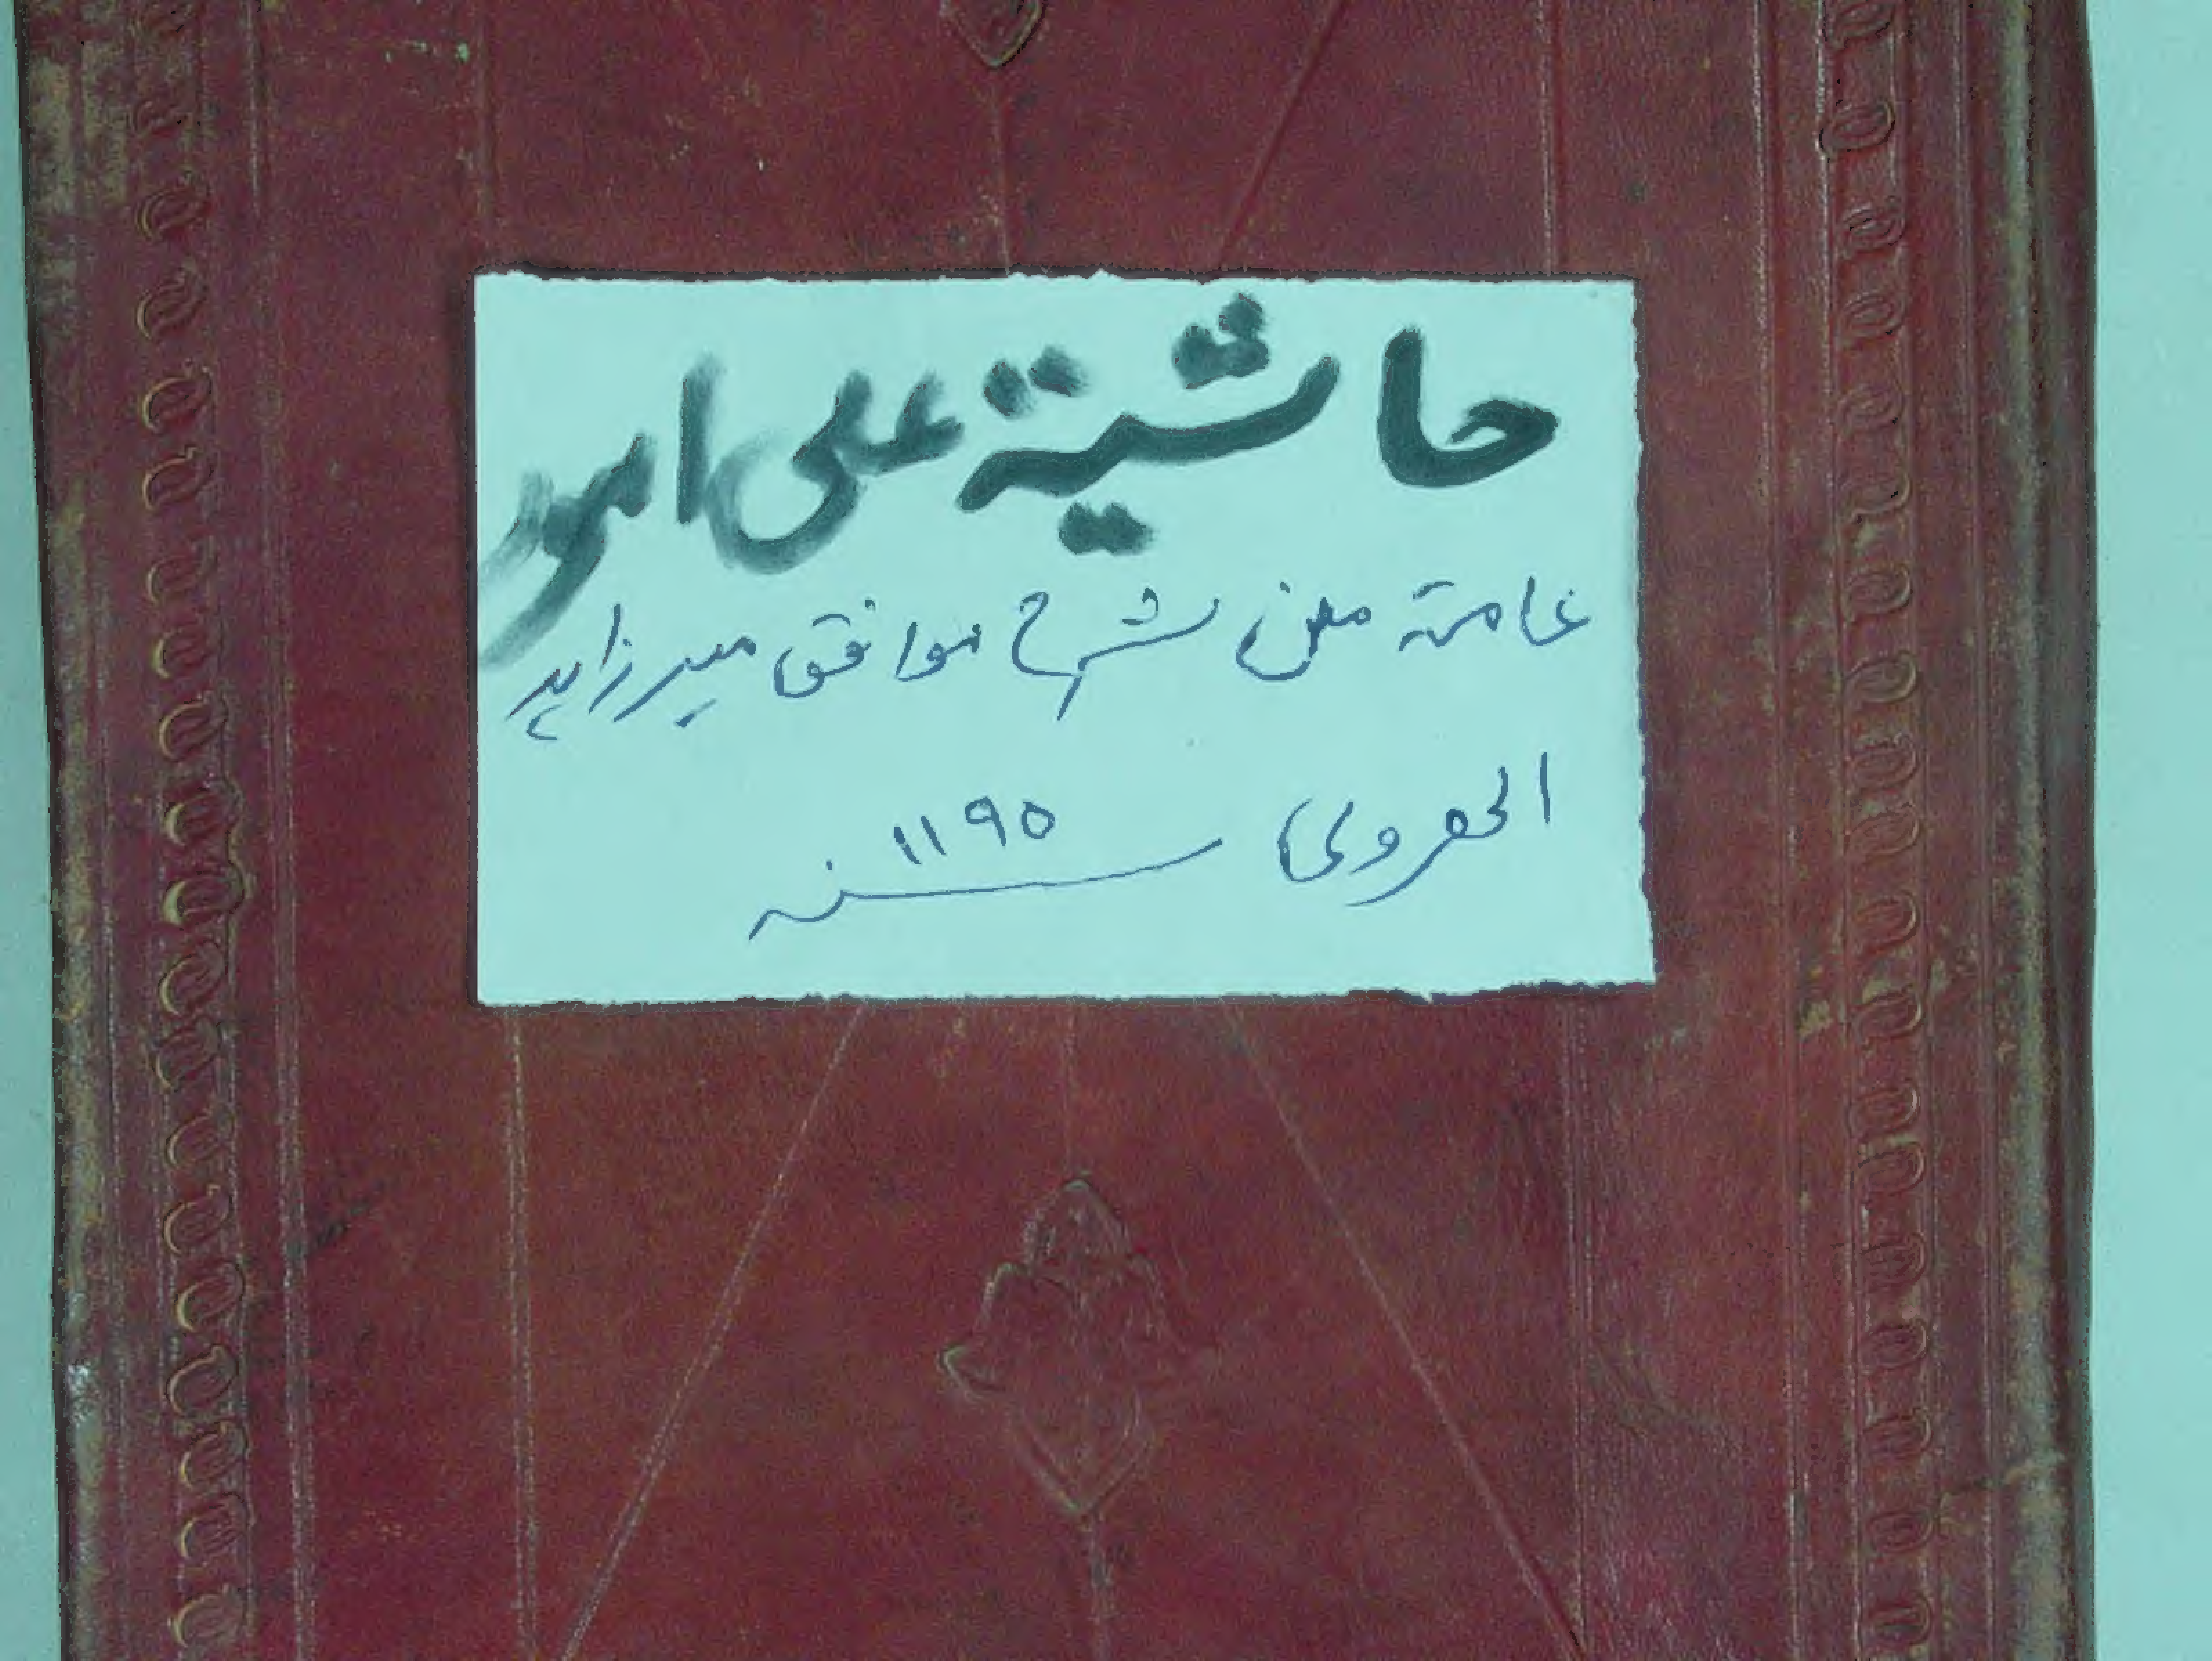 حاشية على امور
عامة من شرح موافق مير زاهد
الهروي سنه ١١٩٥